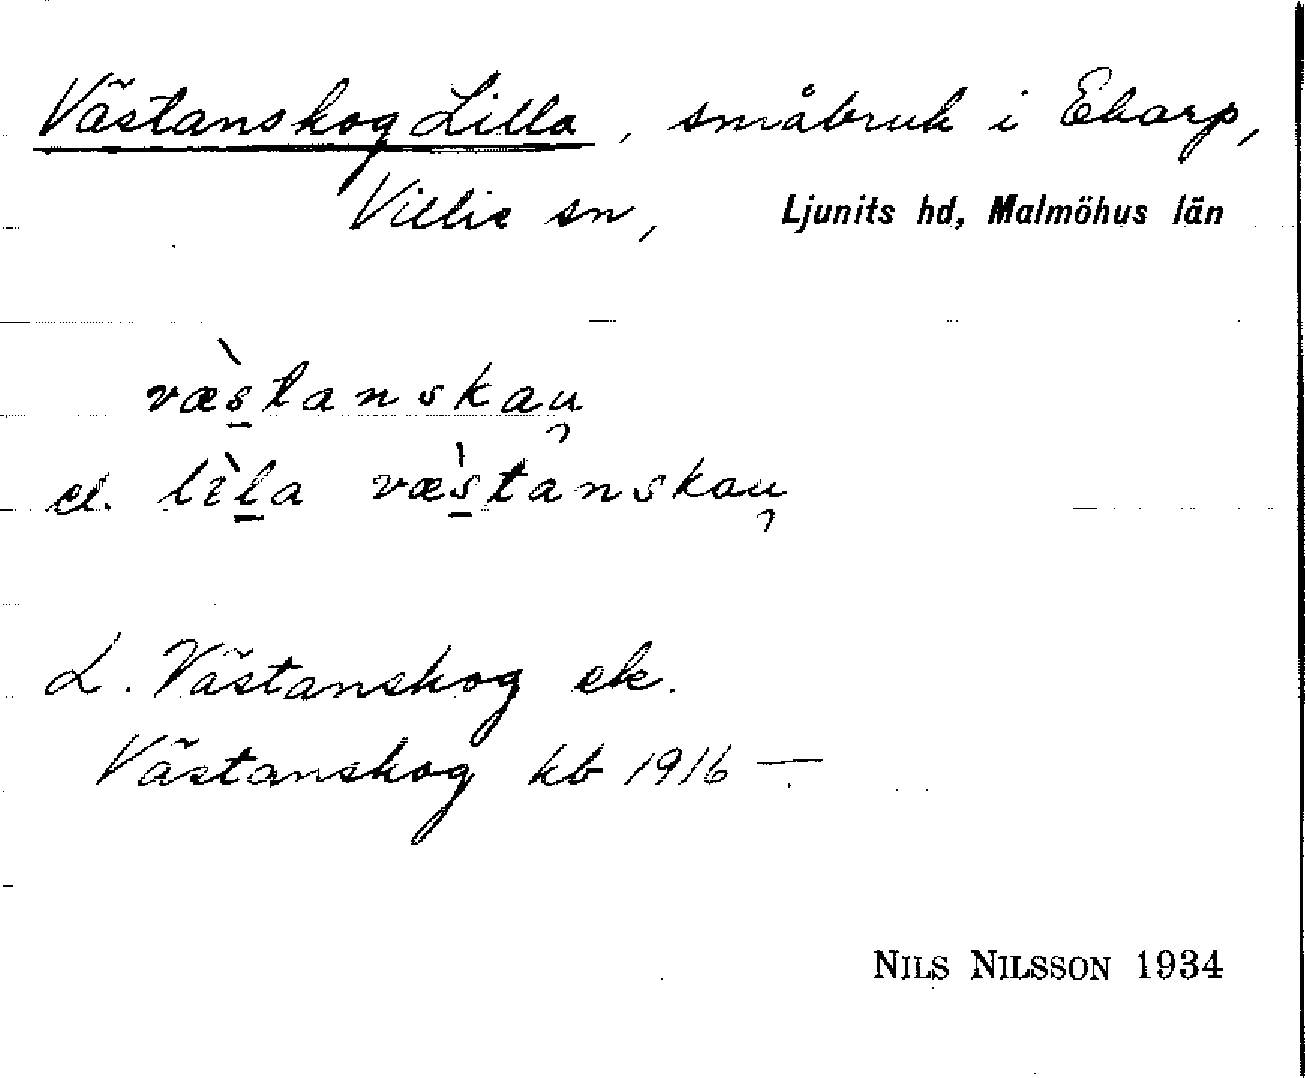 Västanskog Lilla, småbruk i Ebarp,
Villie sn, Ljunits hd, Malmöhus län
væ̀s̲tanskau̯
el. lìl̲a væ̀s̲tanskau̯
L. Västanskog ek.
Västanskog kb 1916 —
NILS NILSSON 1934